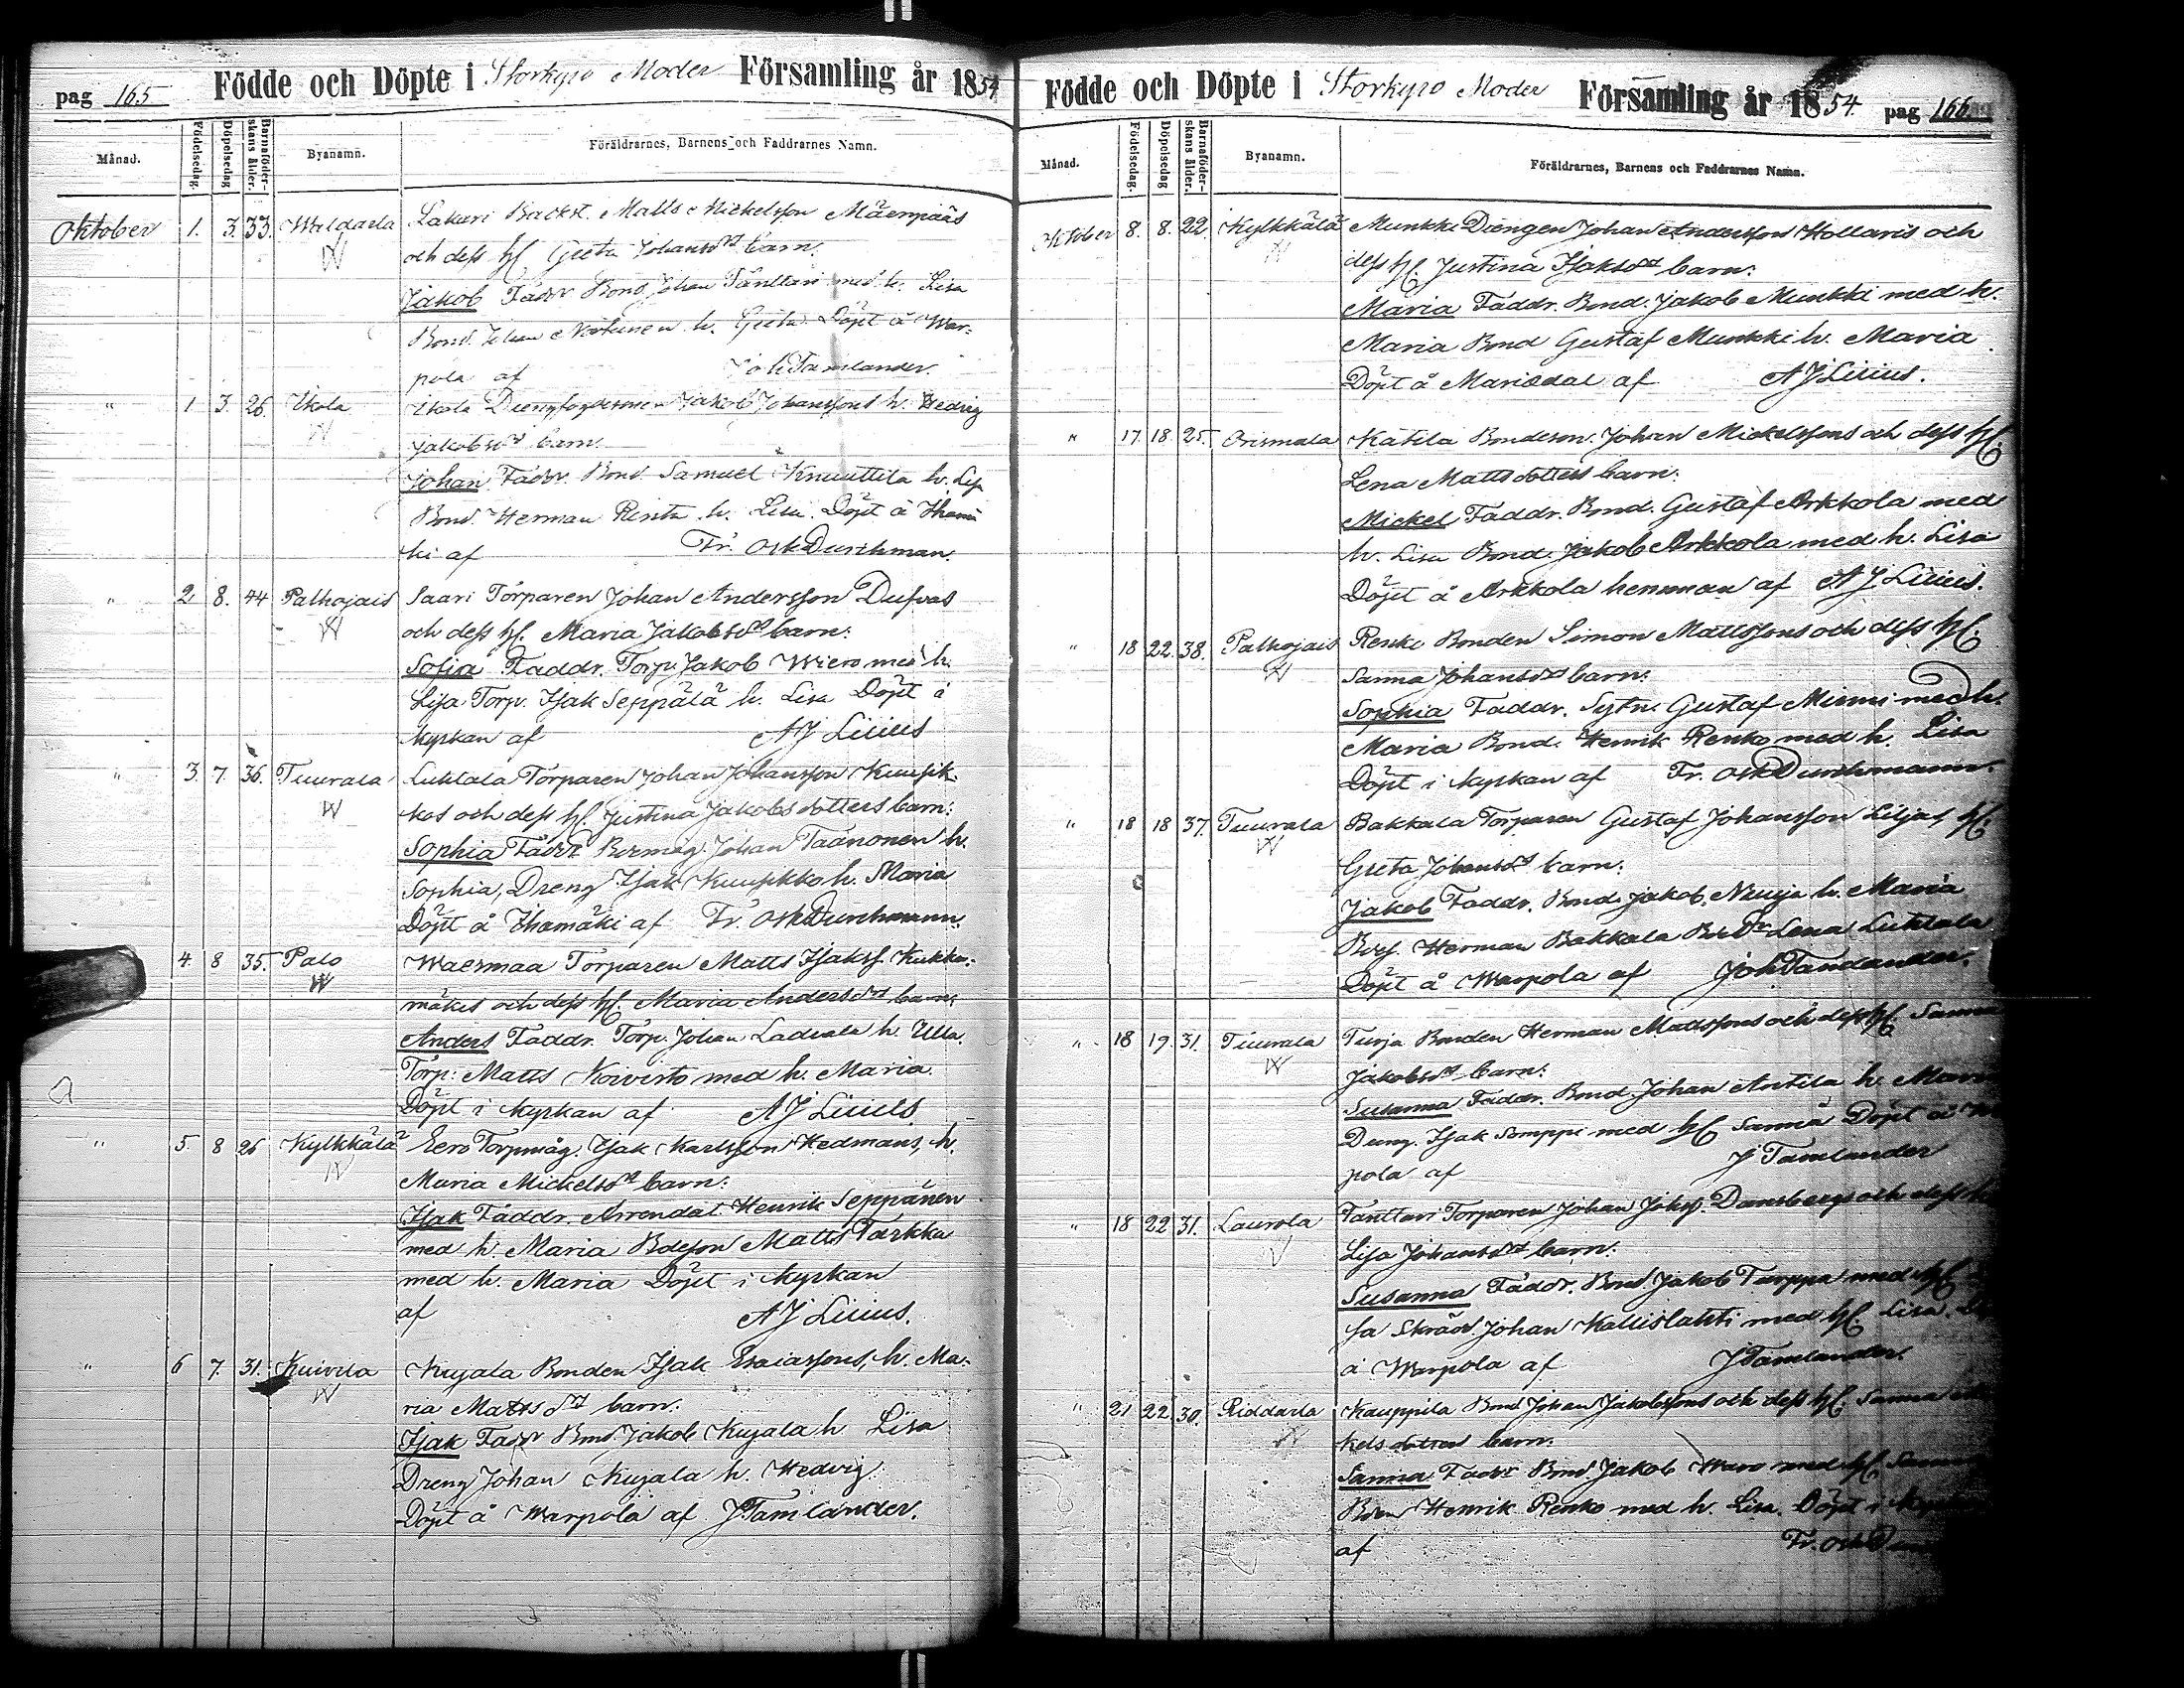 pag 165 Födde och Döpte i Storkyro Moder Församling år 1854
Månad. Födelsedag. Döpelsedag Barnaföderskans ålder. Byanamn. Föräldrarnes, Barnens och Faddrarnes Namn.
Oktober 1. 3. 33. Weldarla Lakari Backst. Matts Mickelsson Mäenpääs
och dess hf Greta Johansdr barn.
Jakob Faddr Bond Johan Tänttäri med h. Lisa
Bond. Johan h. Greta. Döpt å War-
pola af Joh Tamlander.
" 1 3. 26. Ikola Ikola Drengfogdesonen Jakob Johanssons h. Hedvig
Jakobsdr barn.
Johan Faddr. Bond Samuel Knuuttila h. Lisa
Bond. Herman Rinta h. Lisa. Döpt å Ihamä
ki af Fr. Osk Durchman.
" 2 8. 44 Palhojais Saari Torparen Johan Andersson Dufvas
och dess hf. Maria Jakobsdr barn:
Sofia Faddr. Torp. Jakob Wiero med h.
Lisa Torp. Isak Seppälä h. Lisa Döpt i
kyrkan af AJ Lilius
" 3. 7. 36. Tuurala Luhtala Torparen Johan Johansson Kuusik-
kos och dess hf. Justina Jakobsdotters barn:
Sophia Faddr Johan Taanonen h.
Sophia, Dreng Isak Kuusikko h. Maria
Döpt å Ihamäki af Fr. Osk Durchmann.
4. 8 35. Palo Waermaa Torparen Matts Isakss. Kukko-
mäkis och dess hf. Maria Andersdr barn:
Anders Faddr. Torp. Johan Laduala h. Ulla.
Torp: Matts Koivisto med h. Maria.
Döpt i kyrkan af AJ Lilius
" 5. 8 26 Kylkkälä Eero Torpmåg. Isak Karlsson Hedmans, h.
Maria Mickelsdr barn:
Isak Faddr. Arrendat. Henrik Seppänen
med h. Maria Bdeson Matts Tarkka
med h. Maria Döpt i kyrkan
af AJ Lilius.
" 6 7. 31. Kuivila Kujala Bonden Isak Esaiassons, h. Ma-
ria Mattsdr barn:
Isak Faddr Bond. Jakob Kujala h Lisa
Dreng Johan Kujala h. Hedvig.
Döpt å Warpola af J Tamlander.
Födde och Döpte i Storkyro Moder Församling år 1854. pag 166
Månad. Födelsedag. Döpelsedag Barnaföderskans ålder. Byanamn. Föräldrarnes, Barnens och Faddrarnes Namn.
Oktober 8. 8. 22. Kylkkälä Munkki Drengen Johan Anderssons Hollaris och
dess hf. Justina Isaksdr barn:
Maria Faddr. Bond. Jakob Munkki med h.
Maria Bond Gustaf Munkki h. Maria.
Döpt å Mariedal af AJ Lilius.
" 17. 18. 25. Orismala Katila Bondeson Johan Mickelssons och dess hf.
Lena Mattsdotters barn:
Mickel Faddr. Bond. Gustaf Arkkola med
h. Lisa Bond. Jakob Arkkola med h. Lisa
Döpt å Arkkola hemman af AJ Lilius.
" 18 22. 38. Palhojais Renko Bonden Simon Mattssons och dess hf.
Sanna Johansdr barn:
Sophia Faddr. Sytn. Gustaf Minni med h.
Maria Bond. Henrik Renko med h. Lisa
Döpt i kyrkan af Fr. Osk Durchmann.
" 18 18 37. Tuurala Bakkala Torparen Gustaf Johansson Liljas, hf.
Greta Johansdr barn:
Jakob Faddr. Bond. Jakob Neuja h. Maria
Herman Bakkala Lena Luhtala
Döpt å Warpola af Joh Tamlander.
" 18 19. 31. Tuurala Turja Bonden Herman Mattssons och dess hf. Sanna
Jakobsdr barn:
Susanna Faddr. Bond. Johan Anttila h. Maria
Dreng. Isak Somppi med hf Sanna Döpt å
pola af J Tamlander
" 18 22 31. Laurola Tänttäri Torparen Johan Johss. Dansbergs och dess h
Lisa Johansdr barn:
Susanna Faddr. Bond Jakob Turppa med hf
sa Skrädd. Johan Kallislahti med hf. Lisa.
å Warpola af J Tamlander.
" 21 22 30. Riddarla Kauppila Bond Johan Jakobssons och dess hf. Sanna
kelsdotter barn:
Sanna Faddr Bond Jakob Waro med hf.
Henrik Renko med h. Lisa. Döpt i
af Fr. Osk